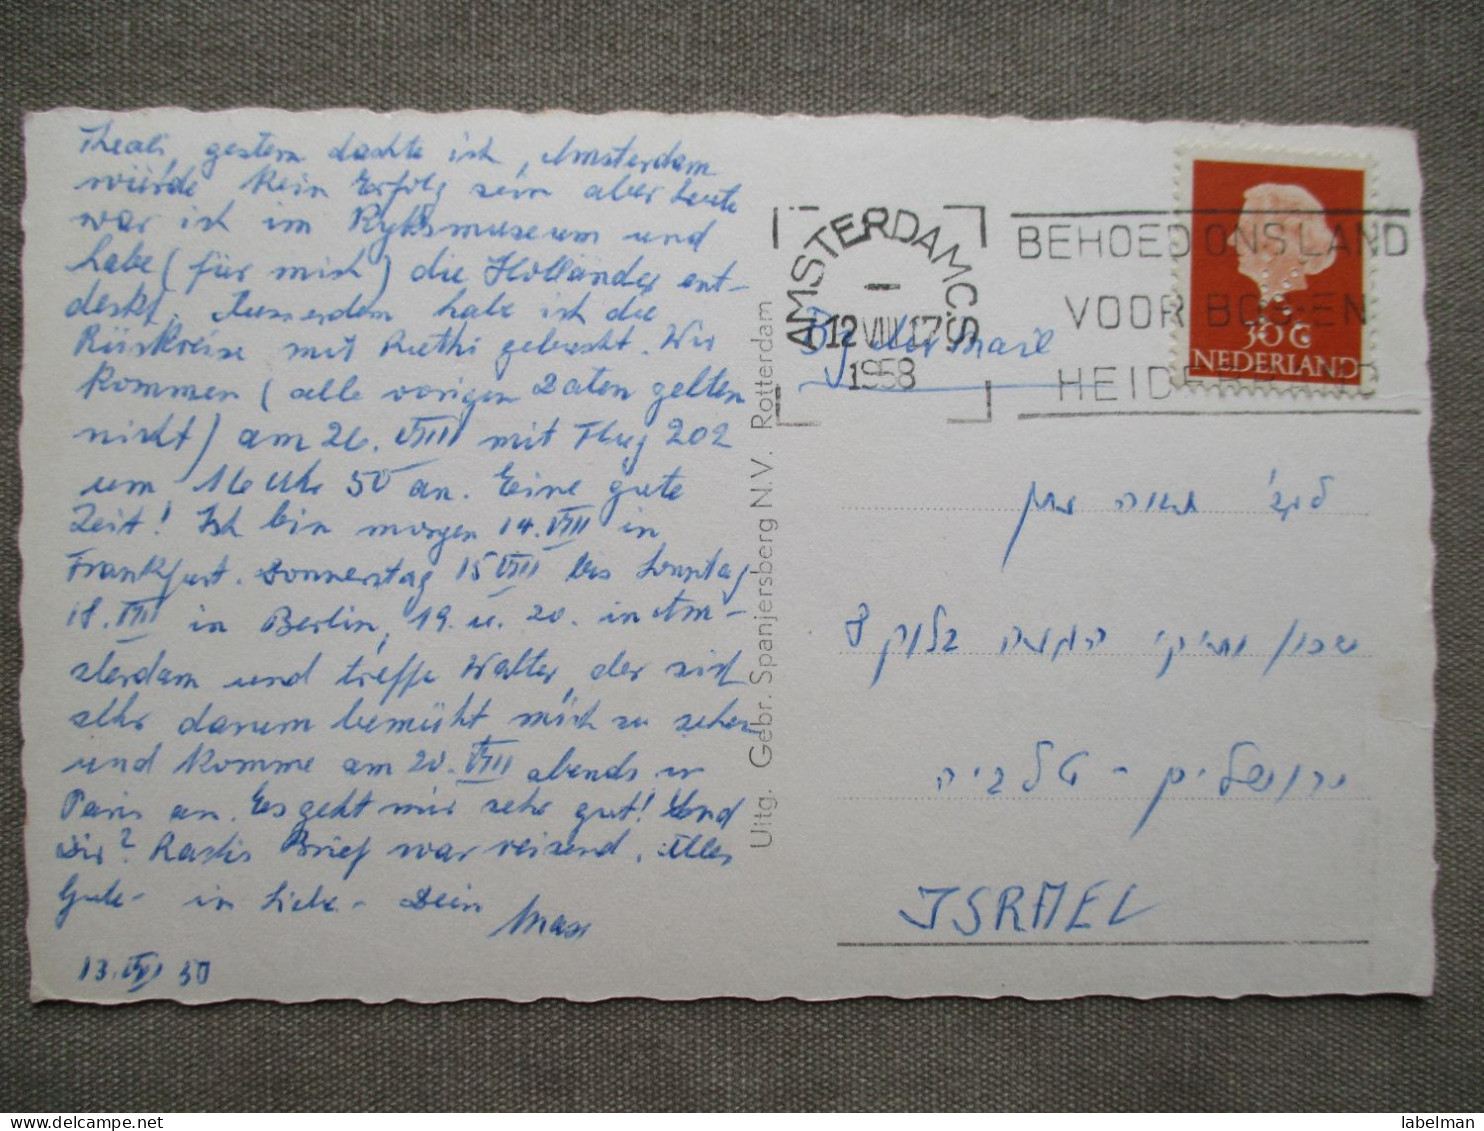 gestern dachte ich, Amsterdam
würde kein Erfolg sein aber heute
war ich im Ryksmuseum und
habe (für mich) die Holländer ent-
deckt. Ausserdem habe ich die
Rückreise mit Ruthi gebucht. Wir
kommen (alle vorigen Daten gelten
nicht) am 26. VIII mit Flug 202
um 16 Uhr 50 an. Eine gute
Zeit! Ich bin morgen 14. VIII in
Frankfurt. Donnerstag 15 VIII bis Sonntag
18. VIII in Berlin, 19. u. 20. in Am-
sterdam und treffe Walter, der sich
sehr darum bemüht mich zu sehen
und komme am 20. VIII abends in
Paris an. Es geht mir sehr gut! Und
Dir? Brief war reizend. Alles
Gute - in Liebe - Dein Max
13. VIII
Uitg. Gebr. Spanjersberg N.V. Rotterdam
AMSTERDAM C.S.
12 VIII 17
1958
BEHOED ONS LAND
VOOR BOSSEN
HEIDEBRAND
30 C
NEDERLAND
By Air mail
שכון ותיקי בלוק 8
ירושלים - טלביה
ISRAEL
labelman
www.delcampe.net